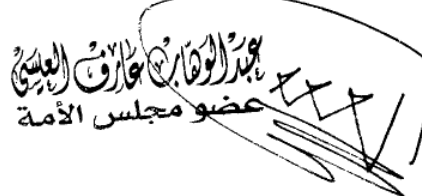 عبدالوهاب عارف العيسى
عضو مجلس الأمة